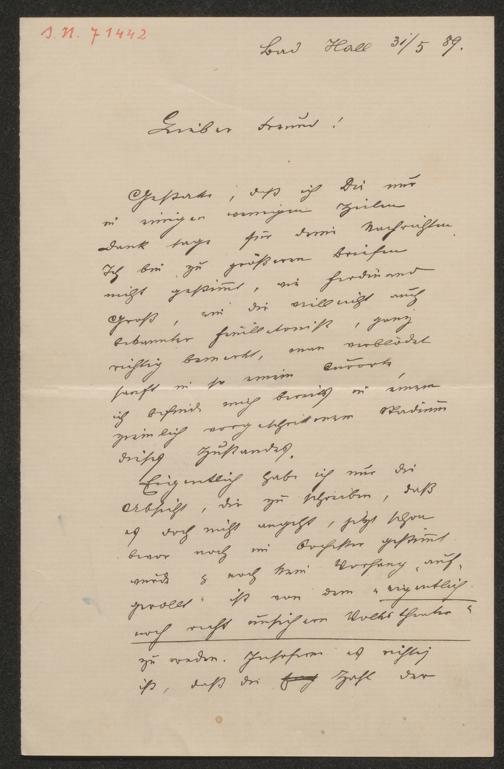 J.N. 71442
Bad Hall 31/5 89.
Lieber Freund!
Gestatte, daß ich Dir nur
in einigen wenigen Zeilen
Dank sage für Deine Nachrichten.
Ich bin zu größeren Briefen
nicht gestimmt, wie Ferdinand
Groß, ein Dir vielleicht auch
bekannter Feuilletonist, ganz
richtig bemerkt, man verblödet
sanft in so einem Curorte,
ich befinde mich bereits in einem
ziemlich vorgeschrittenen Stadium
dieses Zustandes.
Eigentlich habe ich nur die
Absicht, Dir zu schreiben, daß
es doch nicht angeht, jetzt schon
bevor noch im Orchester gestimmt
wurde & noch kein Vorhang „auf-
gerollt" ist von dem „eigentlich
noch recht unsicheren Volkstheater"
zu reden. Insofern es richtig
ist, daß die Zahl der